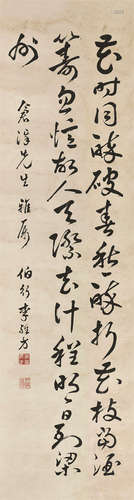 花时同醉破春愁醉折花枝当酒
筹忽忆故人天际去计程明日到梁
州
沧泽先生雅属
伯行李经方